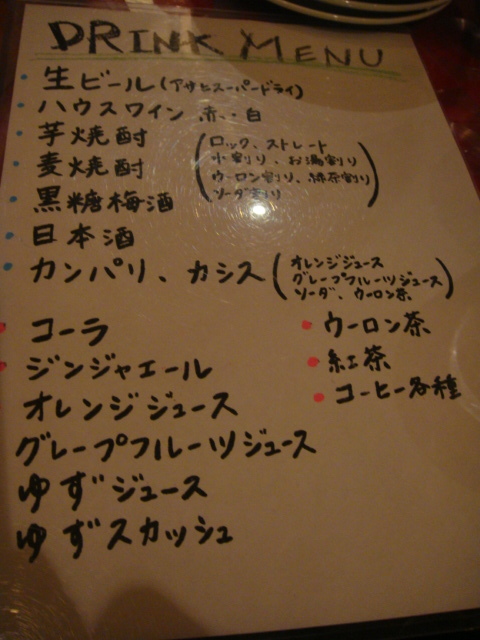 DRINK MENU
生ビール(アサヒスーパードライ)
ハウスワイン 赤・白
芋焼酎
麦焼酎
黒糖梅酒
(ロック、ストレート
水割り、お湯割り
ウーロン割り、緑茶割り
ソーダ割り)
日本酒
カンパリ、カシス
(オレンジジュース
グレープフルーツジュース
ソーダ、ウーロン茶)
コーラ
ジンジャエール
オレンジジュース
グレープフルーツジュース
ゆずジュース
ゆずスカッシュ
ウーロン茶
紅茶
コーヒー各種